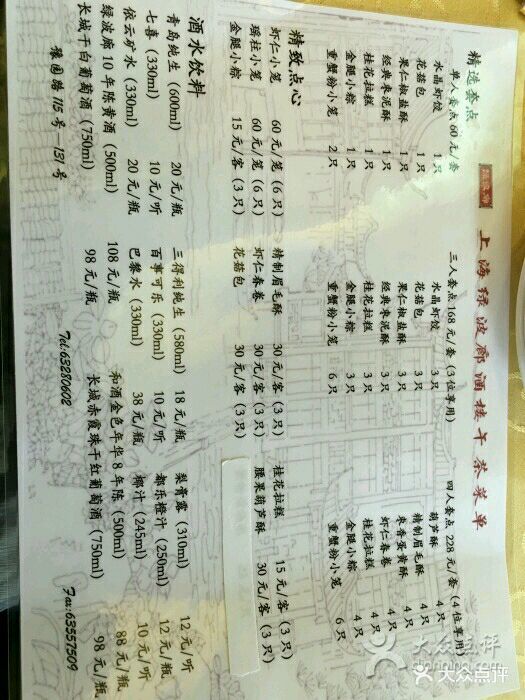 绿波廊
上海绿波廊酒楼午茶菜单
精选套点
单人套点 60元/套
水晶虾饺 1只
花菇包 1只
果仁椒盐酥 1只
经典枣泥酥 1只
桂花拉糕 1只
金腿小粽 1只
重蟹粉小笼 2只
三人套点 168元/套 (3位享用)
水晶虾饺 3只
花菇包 3只
果仁椒盐酥 3只
经典枣泥酥 3只
桂花拉糕 3只
金腿小粽 3只
重蟹粉小笼 6只
四人套点 228元/套 (4位享用)
葫芦酥 4只
精制眉毛酥 4只
枣香蛋黄酥 4只
虾仁春卷 4只
桂花拉糕 4只
金腿小粽 4只
重蟹粉小笼 6只
精致点心
虾仁小笼 60元/笼 (6只) 精制眉毛酥 30元/客 (3只) 桂花拉糕 15元/客 (3只)
瑶柱小笼 60元/笼 (6只) 虾仁春卷 30元/客 (3只) 腰果葫芦酥 30元/客 (3只)
金腿小粽 15元/客 (3只) 花菇包 30元/客 (3只)
酒水饮料
青岛纯生 (600ml) 20元/瓶 三得利纯生 (580ml) 18元/瓶 梨膏露 (310ml) 12元/听
七喜 (330ml) 10元/听 百事可乐 (330ml) 10元/听 都乐橙汁 (250ml) 12元/瓶
依云矿水 (330ml) 20元/瓶 巴黎水 (330ml) 38元/瓶 椰汁 (245ml) 10元/听
绿波廊10年陈黄酒 (500ml) 108元/瓶 和酒金色年华8年陈 (500ml) 88元/瓶
长城干白葡萄酒 (750ml) 98元/瓶 长城赤霞珠干红葡萄酒 (750ml) 98元/瓶
豫园路115号-131号 Tel:63280602 Fax:63557509
大众点评
dianping.com
大众点评